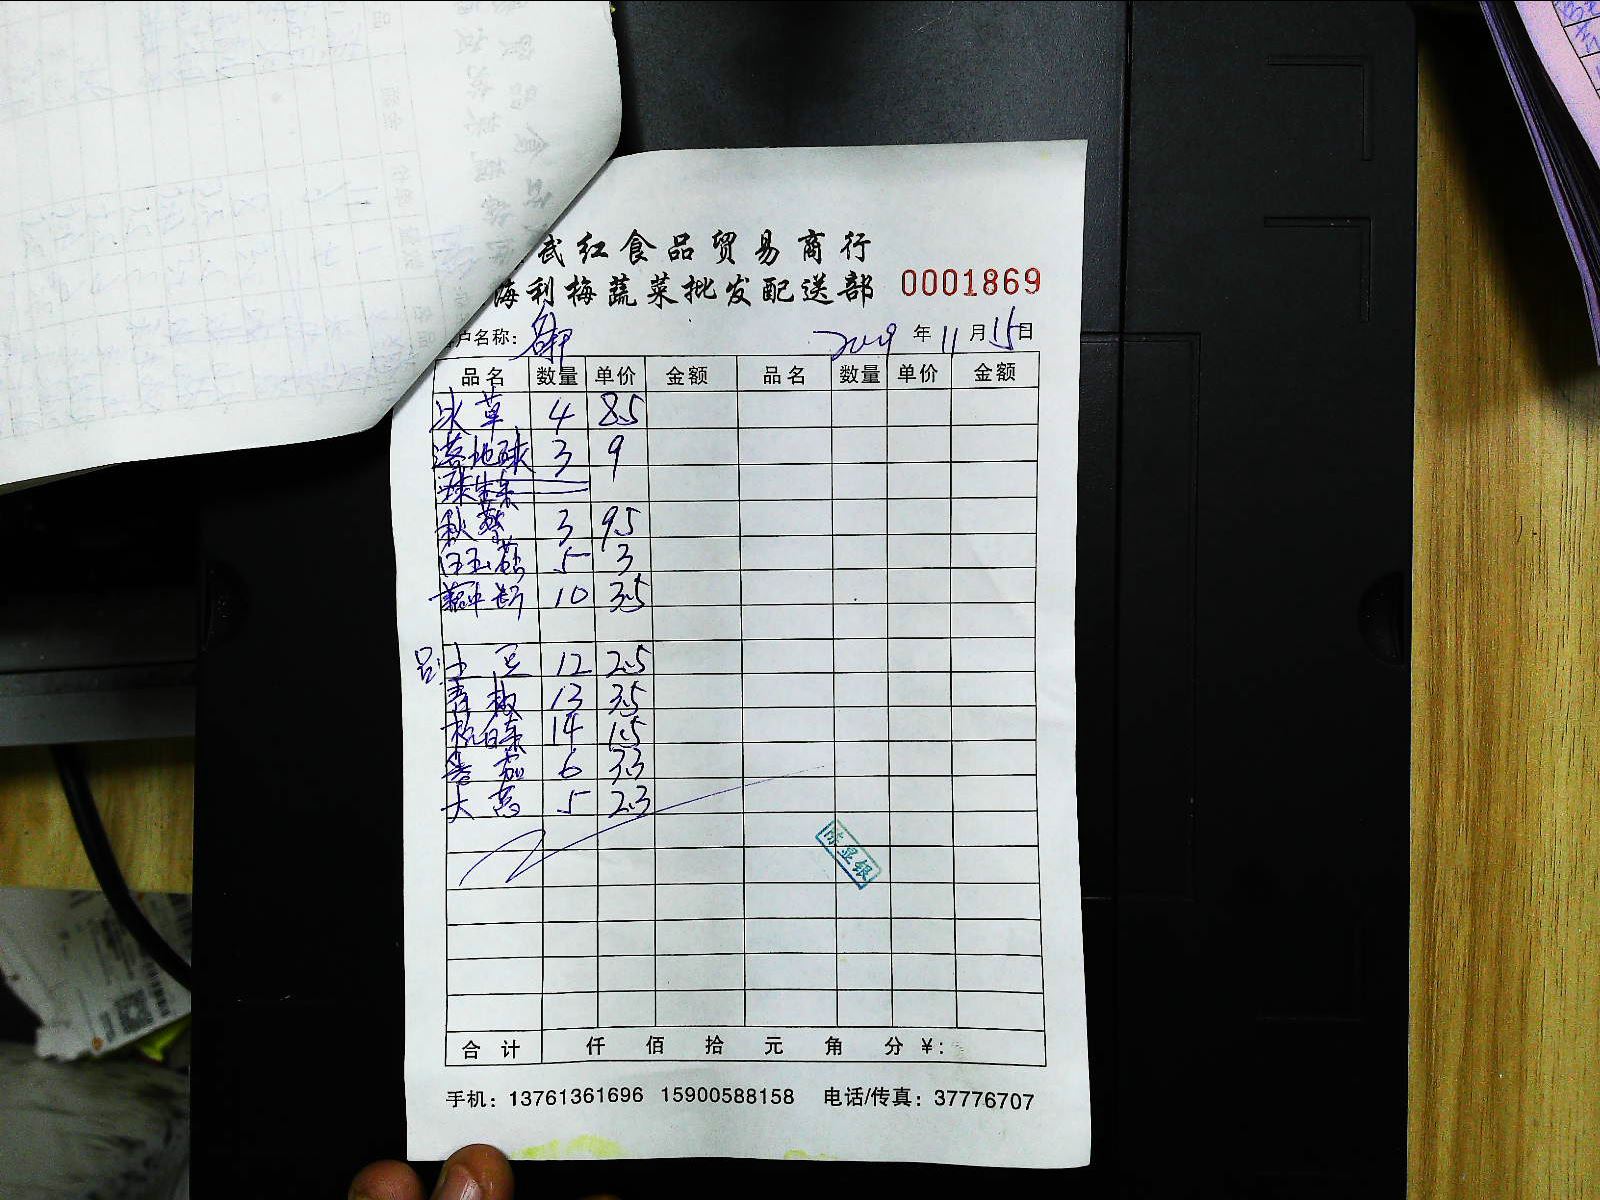 武红食品贸易商行
海利梅蔬菜批发配送部 0001869
户名称： 2019 年 11 月 15 日
品名 数量 单价 金额 品名 数量 单价 金额
冰草 4 8.5
落地球 3 9
秋葵 3 9.5
白玉菇 5 3
10 3.5
另: 土豆 12 2.5
青椒 13 3.5
杭白菜 14 1.5
番茄 6 3.3
大葱 5 2.3
陈显银
合计 仟 佰 拾 元 角 分 ¥:
手机：13761361696 15900588158 电话/传真：37776707